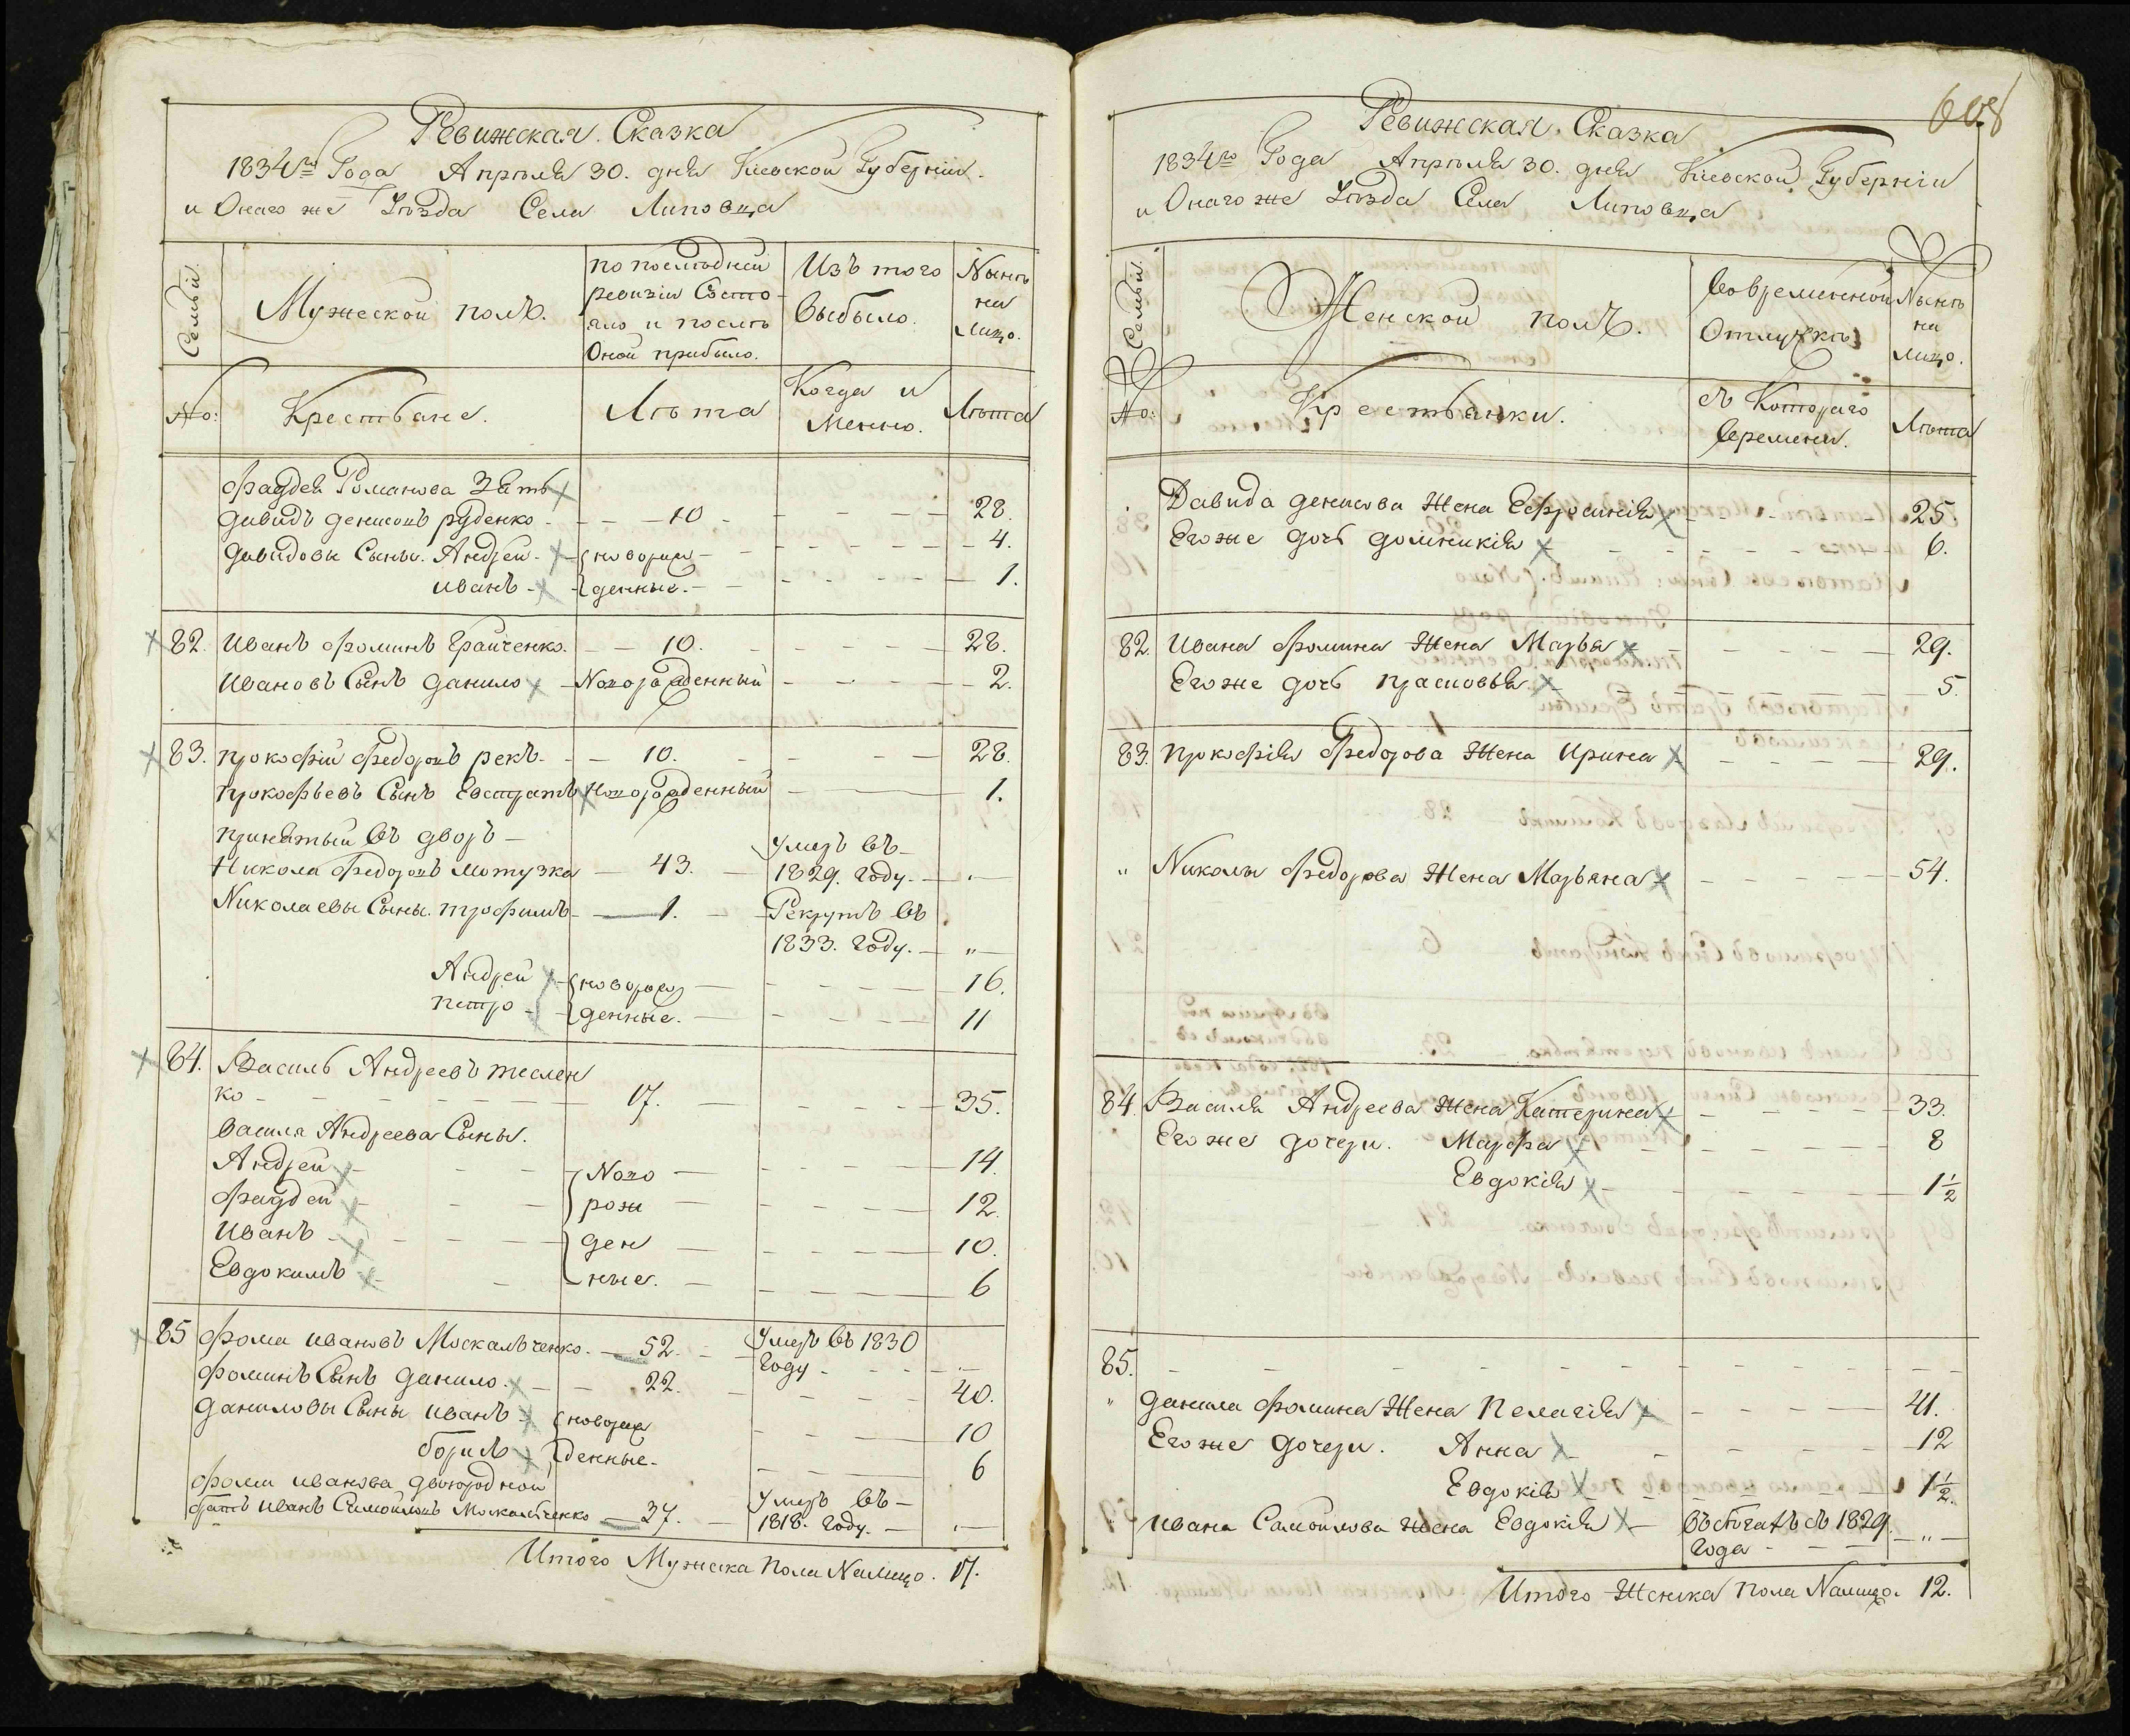 Ревижская Сказка
1834го Года Апрѣля 30. дня Кіевской Губерніи
и Онаго же Уѣзда Села Липовца
Семьи.
Мужеской полъ.
по послѣдней
ревизіи Состо-
яло и послѣ
Оной прибыло.
Изъ того
выбыло.
Нынѣ
на
лицо.
No:
Крестьяне.
Лѣта
Когда и
Менно.
Лѣта
Фаддея Романова Зять
давидъ денисовъ руденко - 10 - 28.
давидовы Сыны. Андрей - новорож 4.
иванъ - денные. - 1.
82. Иванъ Фоминъ Грайченко. - 10. - 28.
Ивановъ Сынъ данило - Новорожденный - 2.
83. прокофій Федоровъ рекъ. - 10. - 28.
прокофьевъ Сынъ Евстратъ Новорожденный - 1.
принятый въ дворъ -
Никола Федоровъ мотузка - 43. - Умеръ въ 1829. году. -
Николаевы Сыны. трофимъ - 1. - Рекрутъ въ
1833. году. - „
Андрей - новорож - 16.
петро - денные. - 11
84. Василь Андреевъ теслен
ко - 17. - 35.
Василя Андреева Сыны.
Андрей - Ново - 14.
Фаддей - рож - 12.
Иванъ - ден - 10.
Евдокимъ - ные. - 6
85 Фома ивановъ Москальченко. - 52. - Умеръ въ 1830
году -
Фоминъ Сынъ данило. - 22. - 40.
даниловы Сыны иванъ - новорож 10
борисъ - денные. 6
Фомы иванова двоюродной
братъ иванъ Самойловъ Москальченко - 37. - Умеръ въ -
1818. году. -
Итого Мужеска пола Налицо. 17.
608
Ревижская Сказка
1834го Года Апрѣля 30. дня Кіевской Губерніи
и Онаго же Уѣзда Села Липовца
Семьи.
Женской полъ.
Вовременной
Отлучкѣ
Нынѣ
на
лицо.
No:
Крестьянки.
съ Котораго
времени.
Лѣта
Давида денисова Жена Ефросинія - 25
Его же дочь домникія - 6.
82. Ивана Фомина Жена Марья - 29.
Его же дочь прасковья. - 5.
83. прокофія Федорова Жена Ирина - 29.
„ Николы Федорова Жена Марьяна - 54.
84. Василя Андреева Жена Катерина - 33.
Его же дочери. Марфа - 8
Евдокія - 1½
85. -
„ данила Фомина Жена Пелагія - 41.
Его же дочери. Анна - 12
Евдокія - 1½.
„ ивана Самойлова Жена Евдокія - въ бѣгахъ съ 1829.
года - „
Итого Женска пола Налицо. 12.